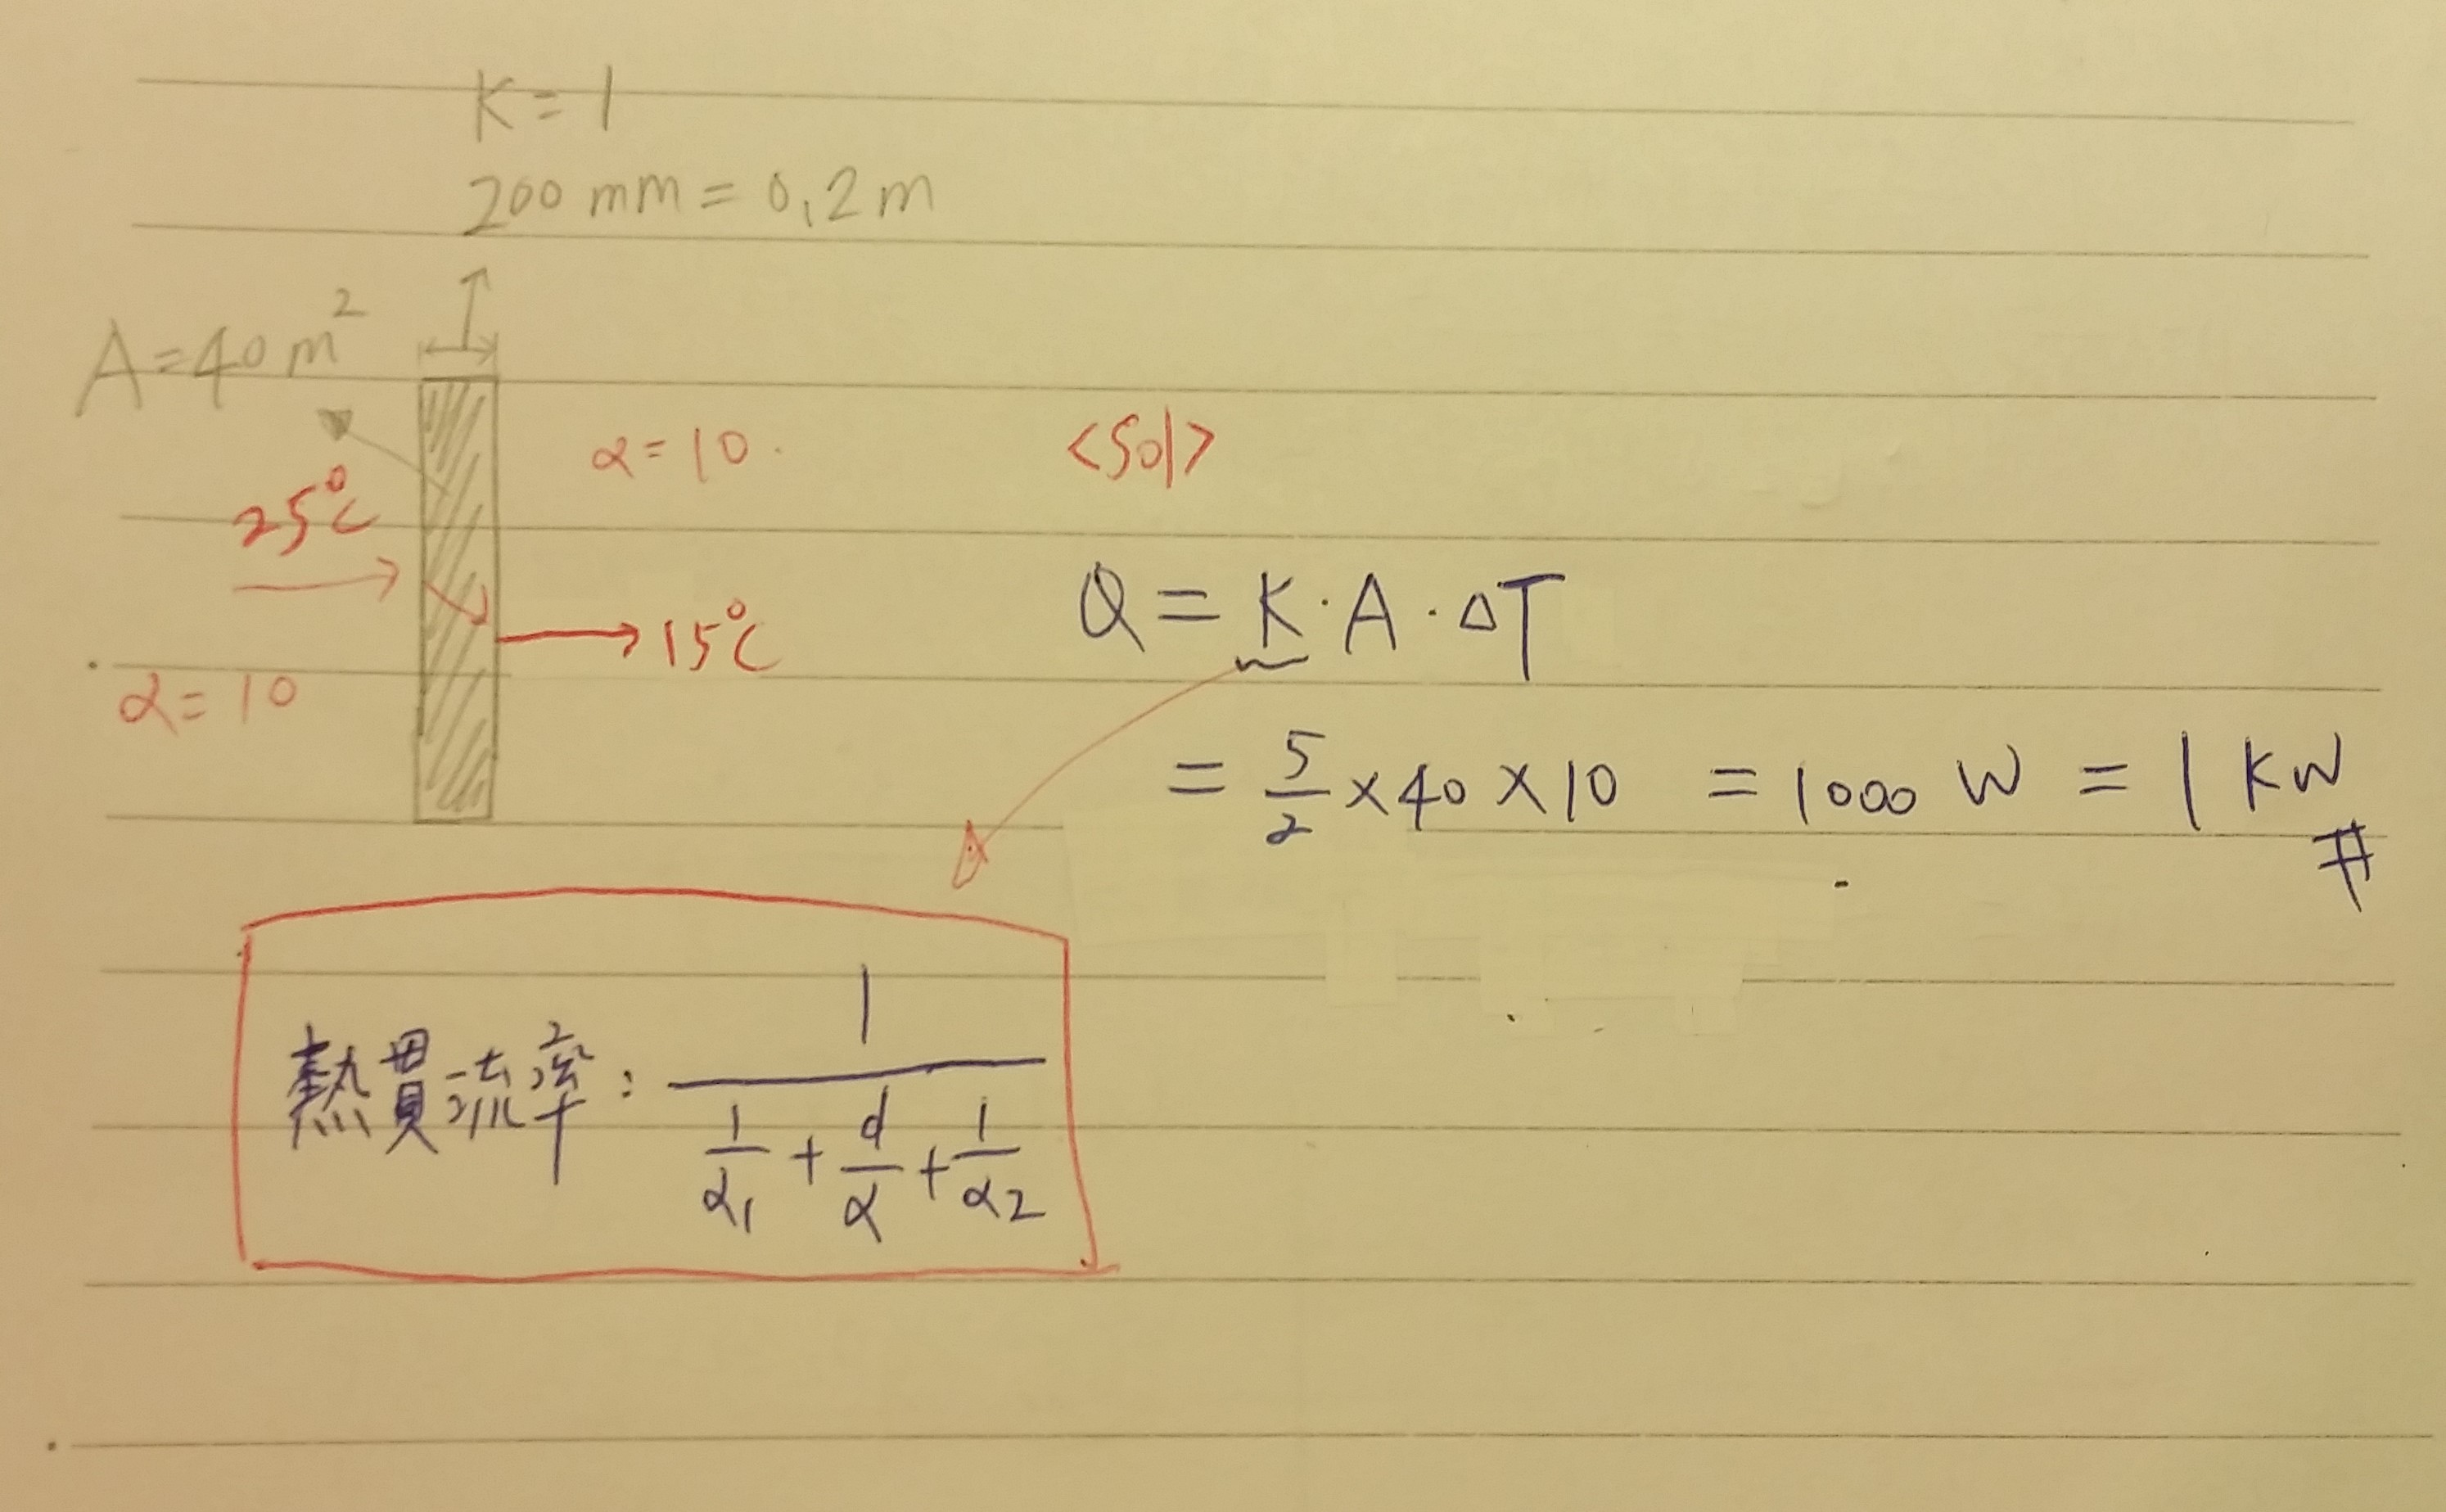 K = 1
200 mm = 0.2 m
A = 40 m²
α = 10
25°C
15°C
α = 10
<Sol>
Q = K · A · ΔT
= 5/2 × 40 × 10 = 1000 W = 1 KW #
熱貫流率 : 1/(1/α1 + d/α + 1/α2)